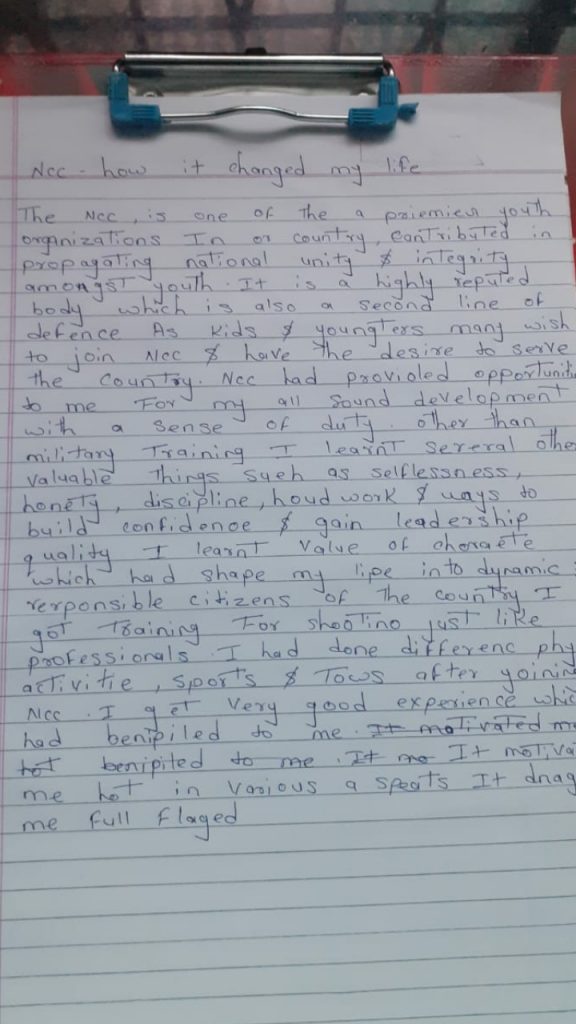 Ncc - how it changed my life
The Ncc, is one of the a priemier youth
organizations In or country, contributed in
propagating national unity & integrity
amongst youth. It is a highly reputed
body which is also a second line of
defence As kids & youngters many wish
to join Ncc & have the desire to serve
the country. Ncc had provioled opportunitie
to me For my all sound development
with a sense of duty. other than
military Training I learnt several other
valuable things sueh as selflessness,
honety, discipline, houd work & ways to
build confidence & gain leadership
quality I learnt value of charaete
which had shape my lipe into dynamic
rerponsible citizens of the country I
got Training For shootino just like
professionals. I had done differenc phy
activitie, sports & Tows after yoining
Ncc. I get very good experience whic
had benipiled to me. It motivated me
hot benipited to me. It mo It motiva
me hot in various a speats It drag
me full flaged